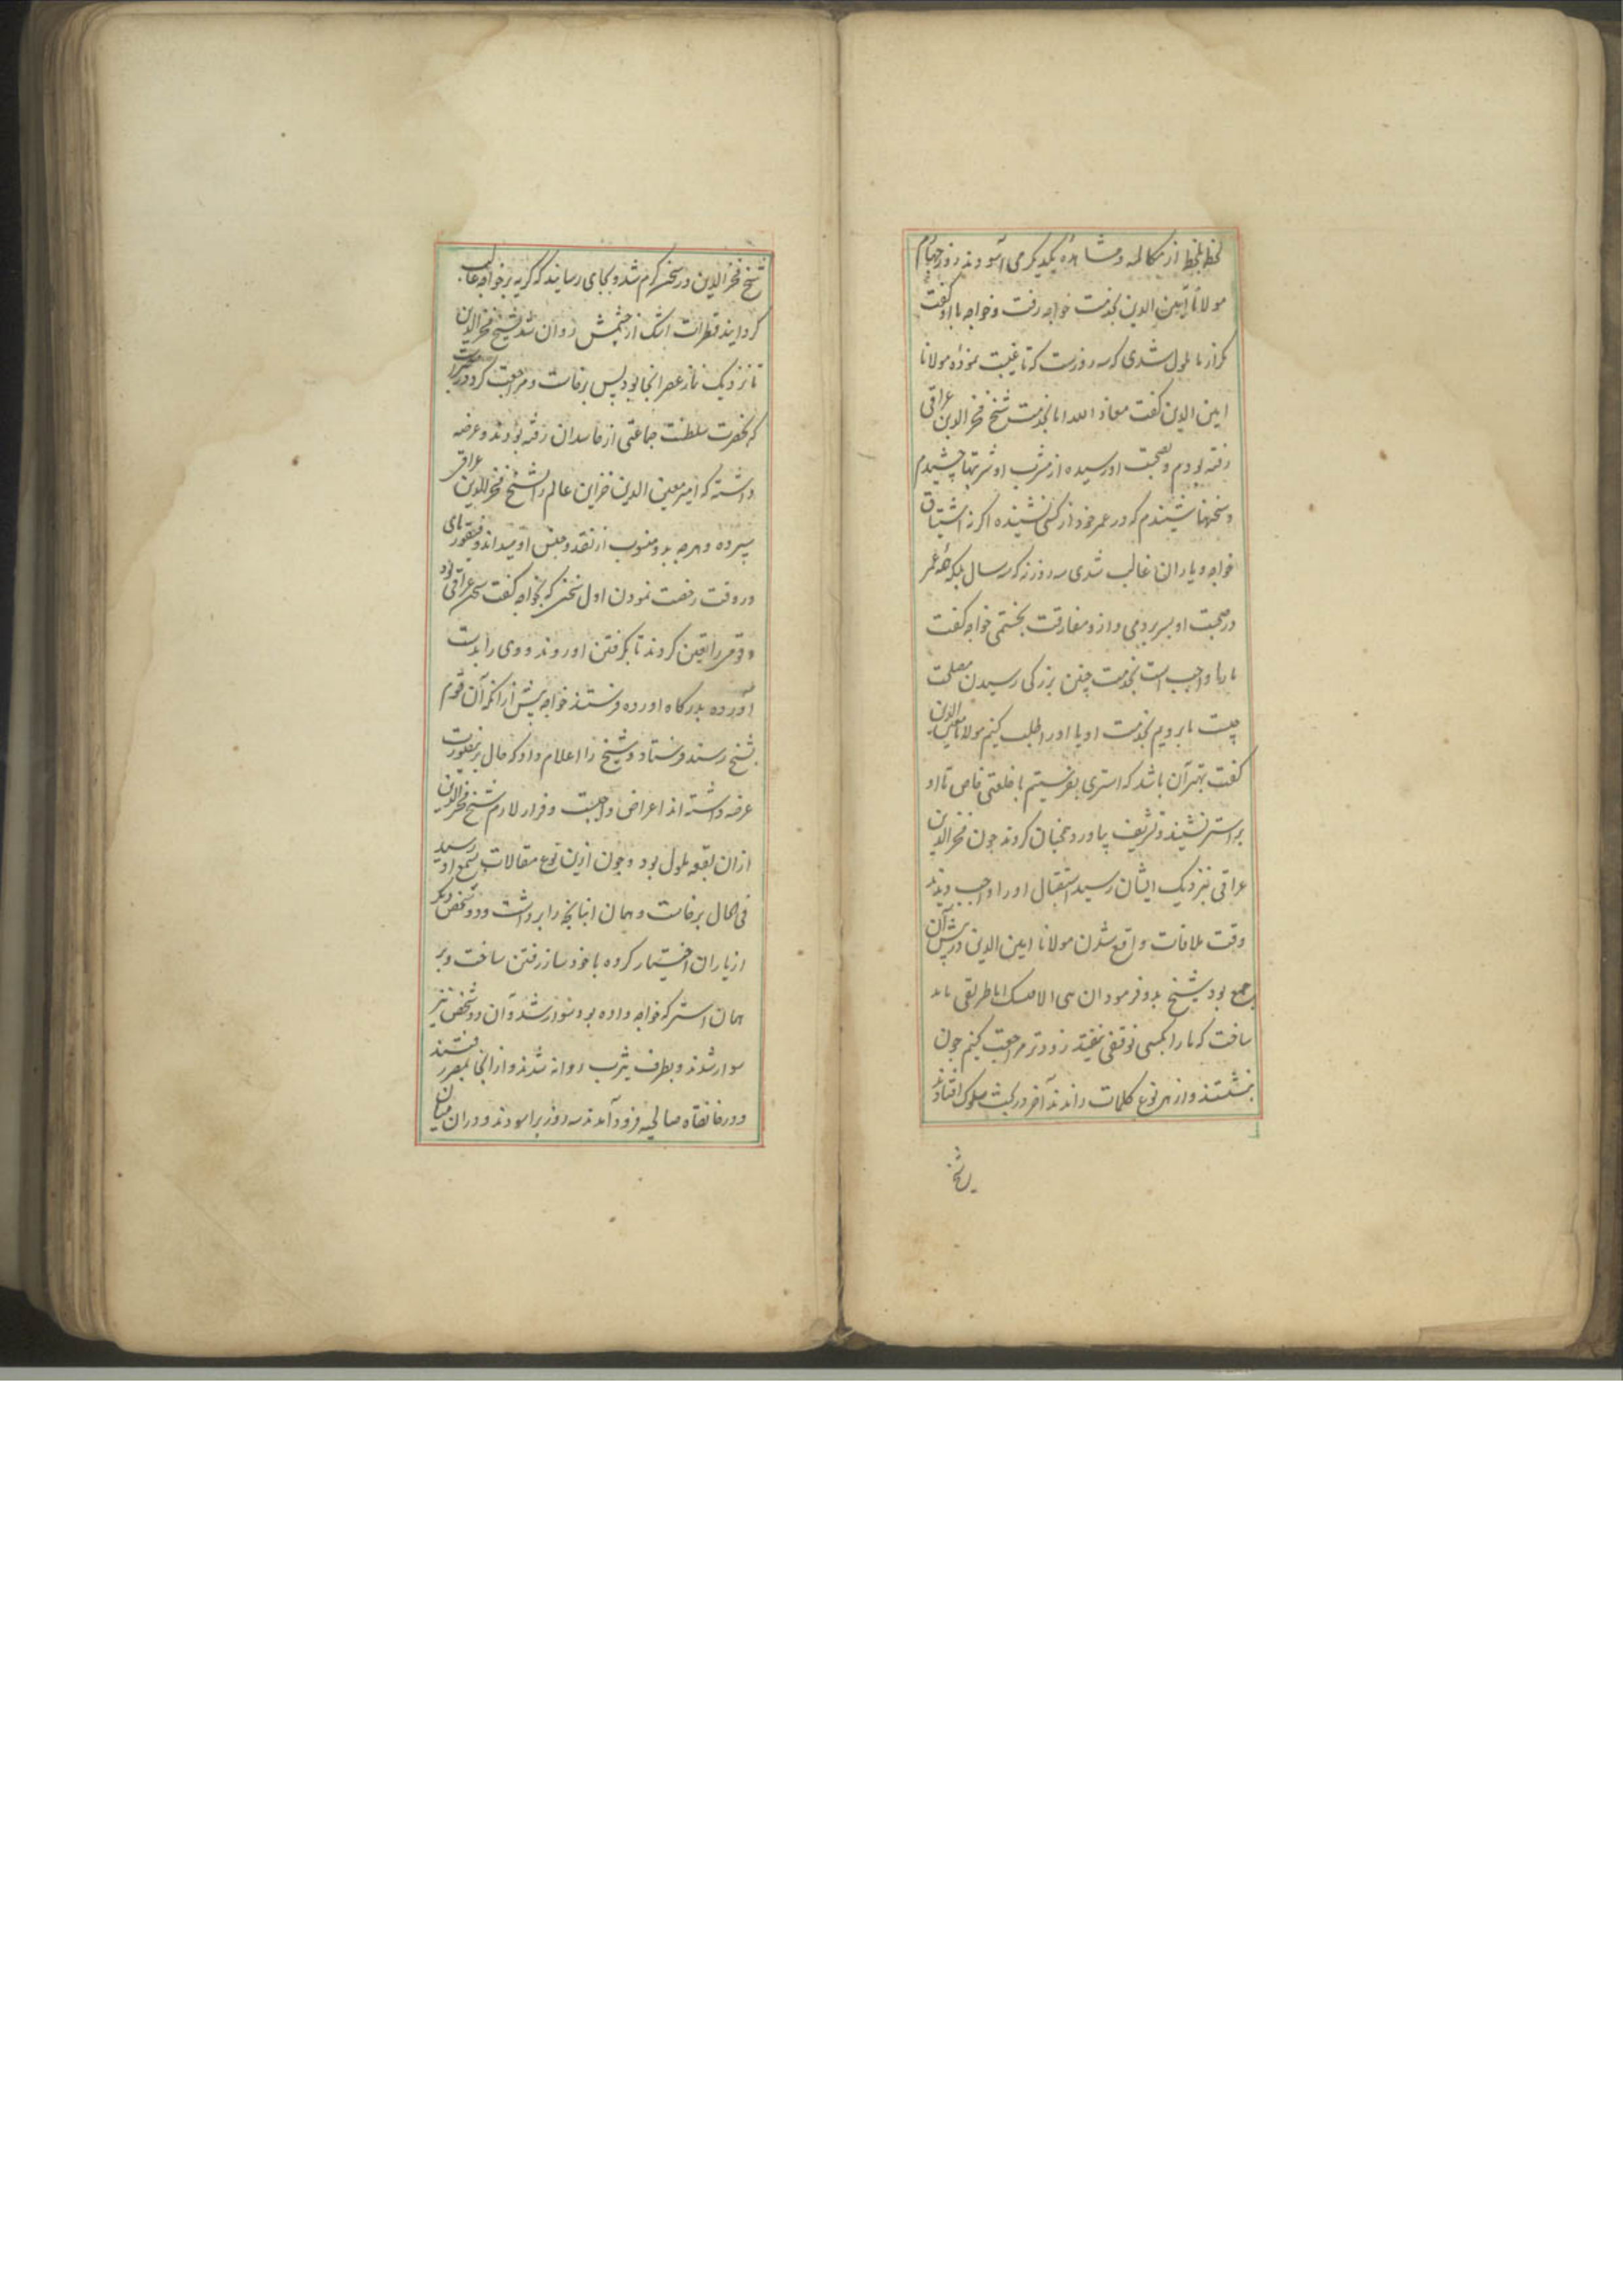 لحظه بلحظه از مکالمه و مشاهده یکدیگر می آسودند روز چهارم
مولانا امین الدین بخدمت خواجه رفت و خواجه با او گفت
مکر از ما ملول شدی که سه روزست که تا غیبت نموده مولانا
امین الدین کفت معاذ الله اما بخدمت شیخ فخر الدین عراقی
رفته بودم و بصحبت او رسیده از مشرب او شربتها چشیدم
و سخنها شنیدم که در عمر خود از کسی نشنیده اکر نه اشتیاق
خواجه و یاران غالب شدی سه روز نه که سه سال بلکه همه عمر
در صحبت او بسر بردمی و از و مفارقت نجستمی خواجه کفت
ما را واجب است بخدمت چنین بزرکی رسیدن مصلحت
چیست ما برویم بخدمت او یا او را طلب کنیم مولانا امین الدین
کفت بهتر آن باشد که استری بفرستیم با خلعتی خاص تا او
بر استر نشیند و تشریف بیاورد همچنان کردند چون فخر الدین
عراقی بنزدیک ایشان رسید استقبال او را واجب دیدند
وقت ملاقات واقع شدن مولانا امین الدین در پیش آن
جمع بود شیخ بدو فرمود ان هی الا فتنتک اما طریقی باید
ساخت که ما را بکسی توقفی نیفتد زودتر مراجعت کنیم چون
بنشستند و از هر نوع کلمات راندند آخر در بحث سلوک افتادند
شیخ
شیخ فخر الدین در سخن کرم شد و بجای رسانید که کریه بر خواجه غالب
کردانید قطرات اشک از چشمش روان شد شیخ فخر الدین
تا نزدیک نماز عصر انجا بود پس برخاست و مراجعت کرد
که بحضرت سلطنت جماعتی از حاسدان رفته بودند و عرضه
داشته که امیر معین الدین خزاین عالم را بشیخ فخر الدین عراقی
سپرده و هرچه بدو منسوب از نقد و جنس او میداند و فیقور تای
در وقت رخصت نمودن اول سخن که بخواجه کفت سخن عراقی بود
و قومی را تعین کردند تا بکرفتن او روند و وی را بدست
آورده بدرکاه اورده فرستند خواجه پیش از آنکه آن قوم
بشیخ رسند فرستاد و شیخ را اعلام داد که حال برین صورت
عرضه داشته اند اعراض واجبست و فرار لازم شیخ فخر الدین
ازان بقعه ملول بود و چون ازین نوع مقالات بسمع او رسید
فی الحال برخاست و همان انبانچه را برداشت و دو شخص دیکر
از یاران اختیار کرده با خود ساز رفتن ساخت و بر
همان استر که خواجه داده بود سوار شد و آن دو شخص نیز
سوار شدند و بطرف یثرب روانه شدند و از انجا بمصر رفتند
و در خانقاه صالحیه فرود آمدند سه روز براسودند و دران میان